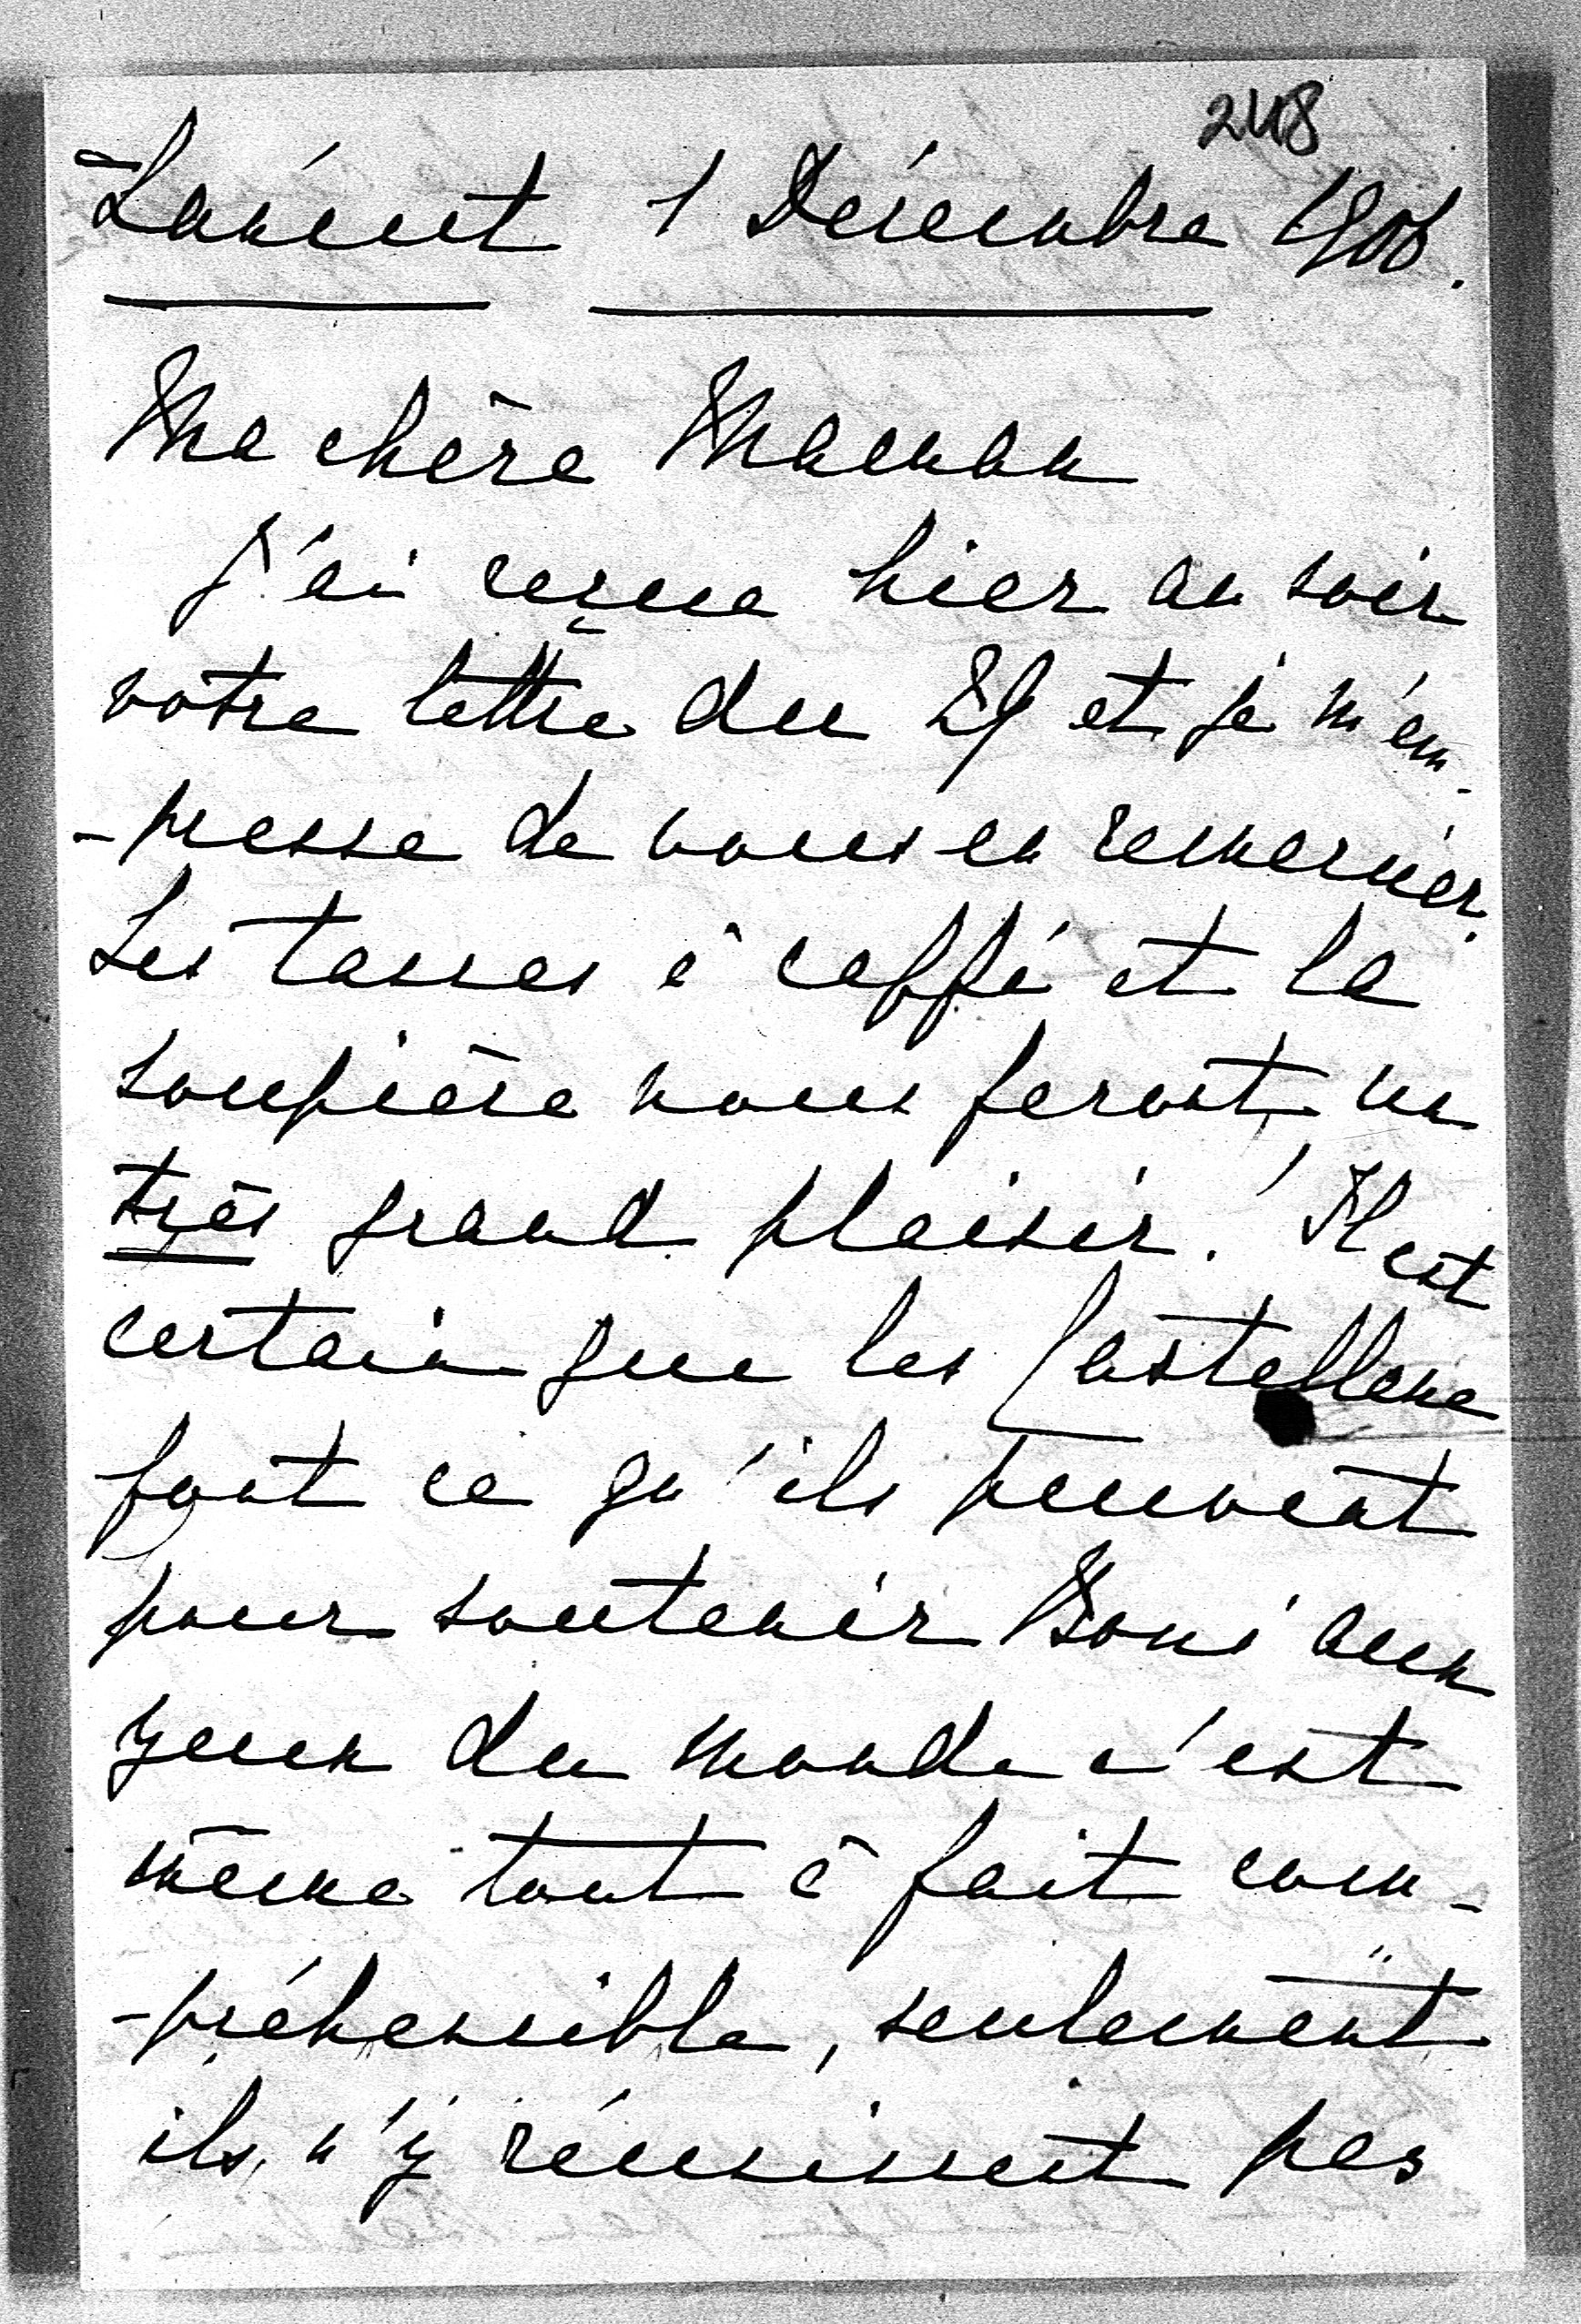 248
Lanéut 1 Décembre 1906.
Ma chère Maman
J'ai reçue hier au soir
votre lettre du 29 et je m'em-
-presse de vous en remercier.
Les tasses à caffé et la
soupière nous feront un
très grand plaisir! Il est
certain que les Castellane
font ce qu'ils peuvent
pour soutenir Boni aux
yeux du monde c'est
même tout à fait com-
-préhensible, seulement
ils n'y réussissent pas